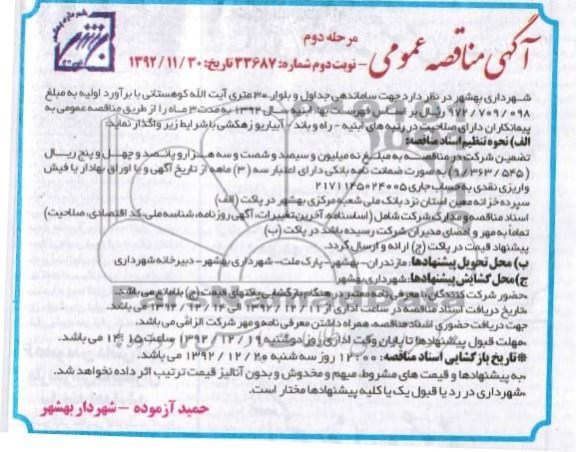 آگهی مناقصه عمومی
مرحله دوم
- نوبت دوم شماره: ۳۳۶۸۷ تاریخ: ۱۳۹۲/۱۱/۳۰
شهرداری بهشهر در نظر دارد جهت ساماندهی جداول و بلوار ۳۰ متری آیت الله کوهستانی با برآورد اولیه به مبلغ
۹۷۲/۷۰۹/۰۹۸ ریال بر اساس فهرست بها ابنیه سال ۱۳۹۲ به مدت ۳ ماه را از طریق مناقصه عمومی به
پیمانکاران دارای صلاحیت در رتبه های ابنیه - راه و باند - آبیاری و زهکشی با شرایط زیر واگذار نماید:
الف) نحوه تنظیم اسناد مناقصه:
تضمین شرکت در مناقصه به مبلغ نه میلیون و سیصد و شصت و سه هزار و پانصد و چهل و پنج ریال
(۱/۳۶۳/۵۴۵) به صورت ضمانت نامه بانکی دارای اعتبار سه (۳) ماهه از تاریخ آگهی و یا اوراق بهادار یا فیش
واریزی نقدی به حساب جاری ۲۱۷۱۱۴۵۰۲۴۰۰۵
سپرده خزانه معین استان نزد بانک ملی شعبه مرکزی بهشهر در پاکت (الف)
اسناد مناقصه و مدارک شرکت شامل (اساسنامه، آخرین تغییرات، آگهی روزنامه، شناسه ملی، کد اقتصادی، صلاحیت)
تماماً به مهر و امضای مدیران شرکت رسیده باشد در پاکت (ب)
پیشنهاد قیمت در پاکت (ج) ارائه و ارسال گردد.
ب) محل تحویل پیشنهادها: مازندران - بهشهر - پارک ملت - شهرداری بهشهر - دبیرخانه شهرداری
ج) محل گشایش پیشنهادها: شهرداری بهشهر
-حضور شرکت کنندگان با معرفی نامه معتبر در هنگام بازگشایی پاکتهای قیمت (ج) بلامانع می باشد.
-تاریخ دریافت اسناد مناقصه در ساعت اداری از ۱۳۹۲/۱۲/۱ الی ۱۳۹۲/۱۲/۱۴ می باشد.
جهت دریافت حضوری اسناد مناقصه، همراه داشتن معرفی نامه و مهر شرکت الزامی می باشد.
-مهلت قبول پیشنهادها تا پایان وقت اداری روز دوشنبه ۱۳۹۲/۱۲/۱۹ و ساعت ۱۴:۱۵ می باشد.
*تاریخ بازگشایی اسناد مناقصه: ۱۲:۰۰ روز سه شنبه ۱۳۹۲/۱۲/۲۰ می باشد.
-به پیشنهادها و قیمت های مشروط، مبهم و مخدوش و بدون آنالیز قیمت ترتیب اثر داده نخواهد شد.
-شهرداری در رد یا قبول یک یا کلیه پیشنهادها مختار است.
حمید آزموده - شهردار بهشهر